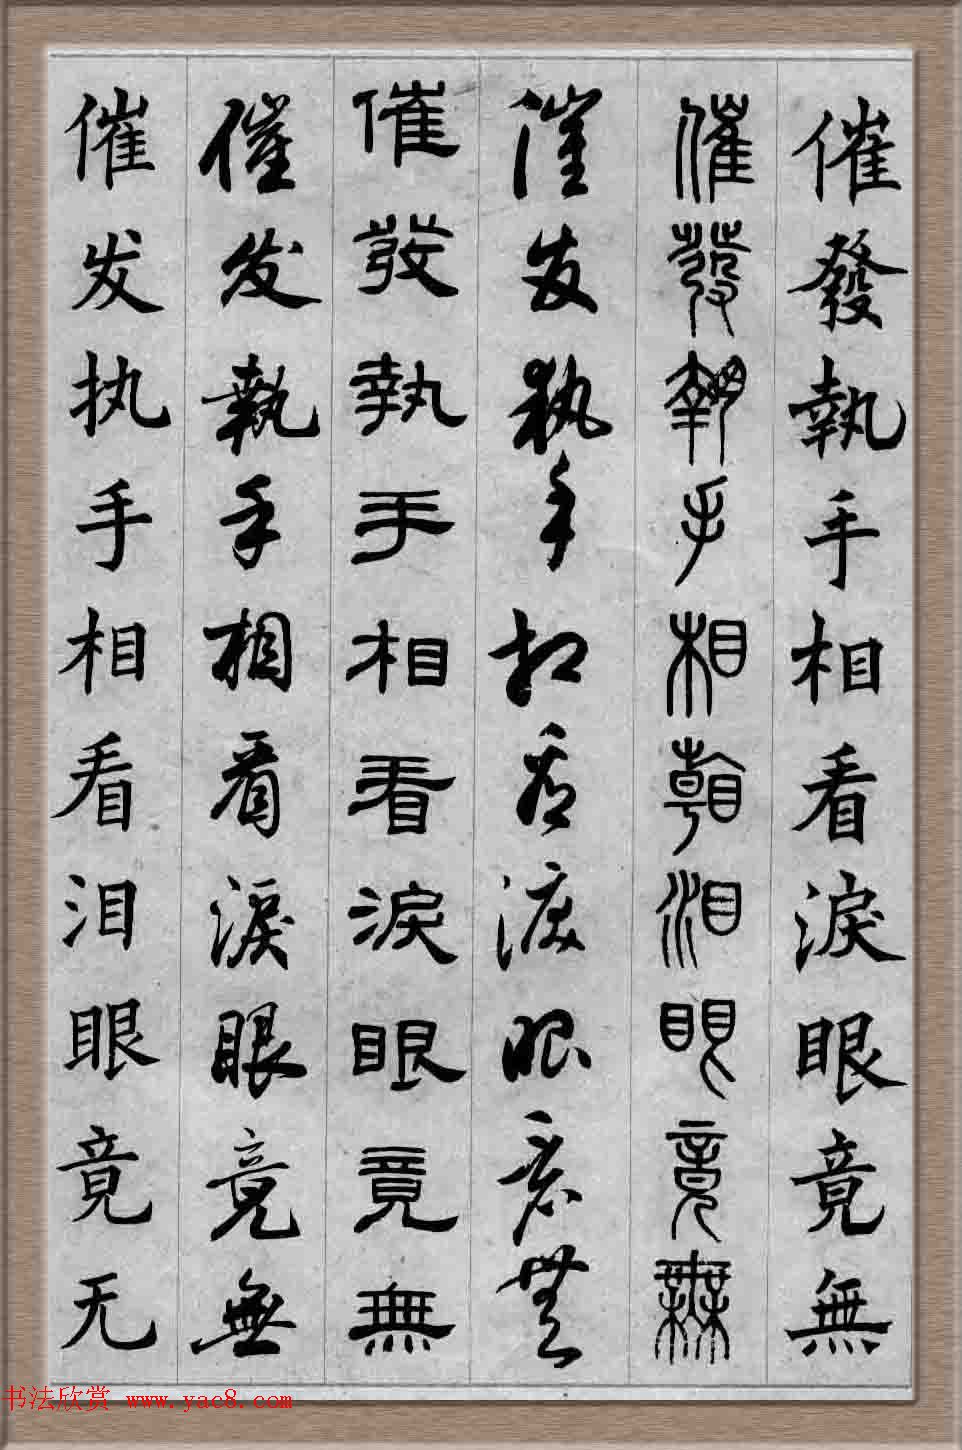 催發執手相看淚眼竟無
催發執手相看泪眼竟無
催发执手相看淚眼竟無
催發執手相看淚眼竟無
催发執手相看淚眼竟無
催发执手相看泪眼竟无
书法欣赏 www.yac8.com